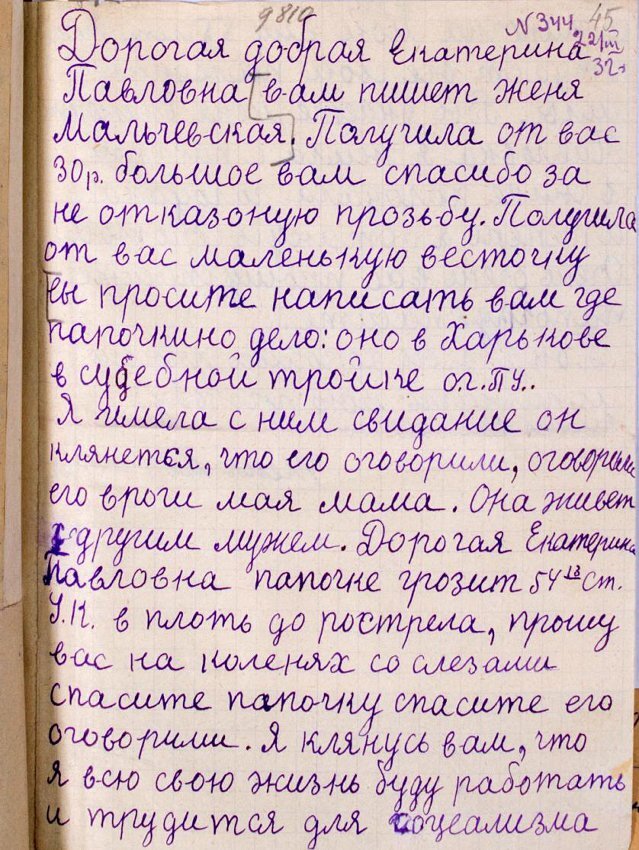 9810
N 344 45
22/III
32г
Дорогая добрая Екатерина
Павловна вам пишет Женя
Мальчевская. Получила от вас
30р. большое вам спасибо за
не отказоную прозьбу. Получила
от вас маленькую весточку
вы просите написать вам где
папочкино дело: оно в Харькове
в судебной тройке ог.ПУ..
Я имела с ним свидание он
клянется, что его оговорили, оговорили
его вроги мая мама. Она живет
с другим мужем. Дорогая Екатерина
Павловна папочке грозит 54 13 ст.
У.К. в плоть до рострела, прошу
вас на коленях со слезами
спасите папочку спасите его
оговорили. Я клянусь вам, что
я всю свою жизнь буду работать
и трудится для соцеализма